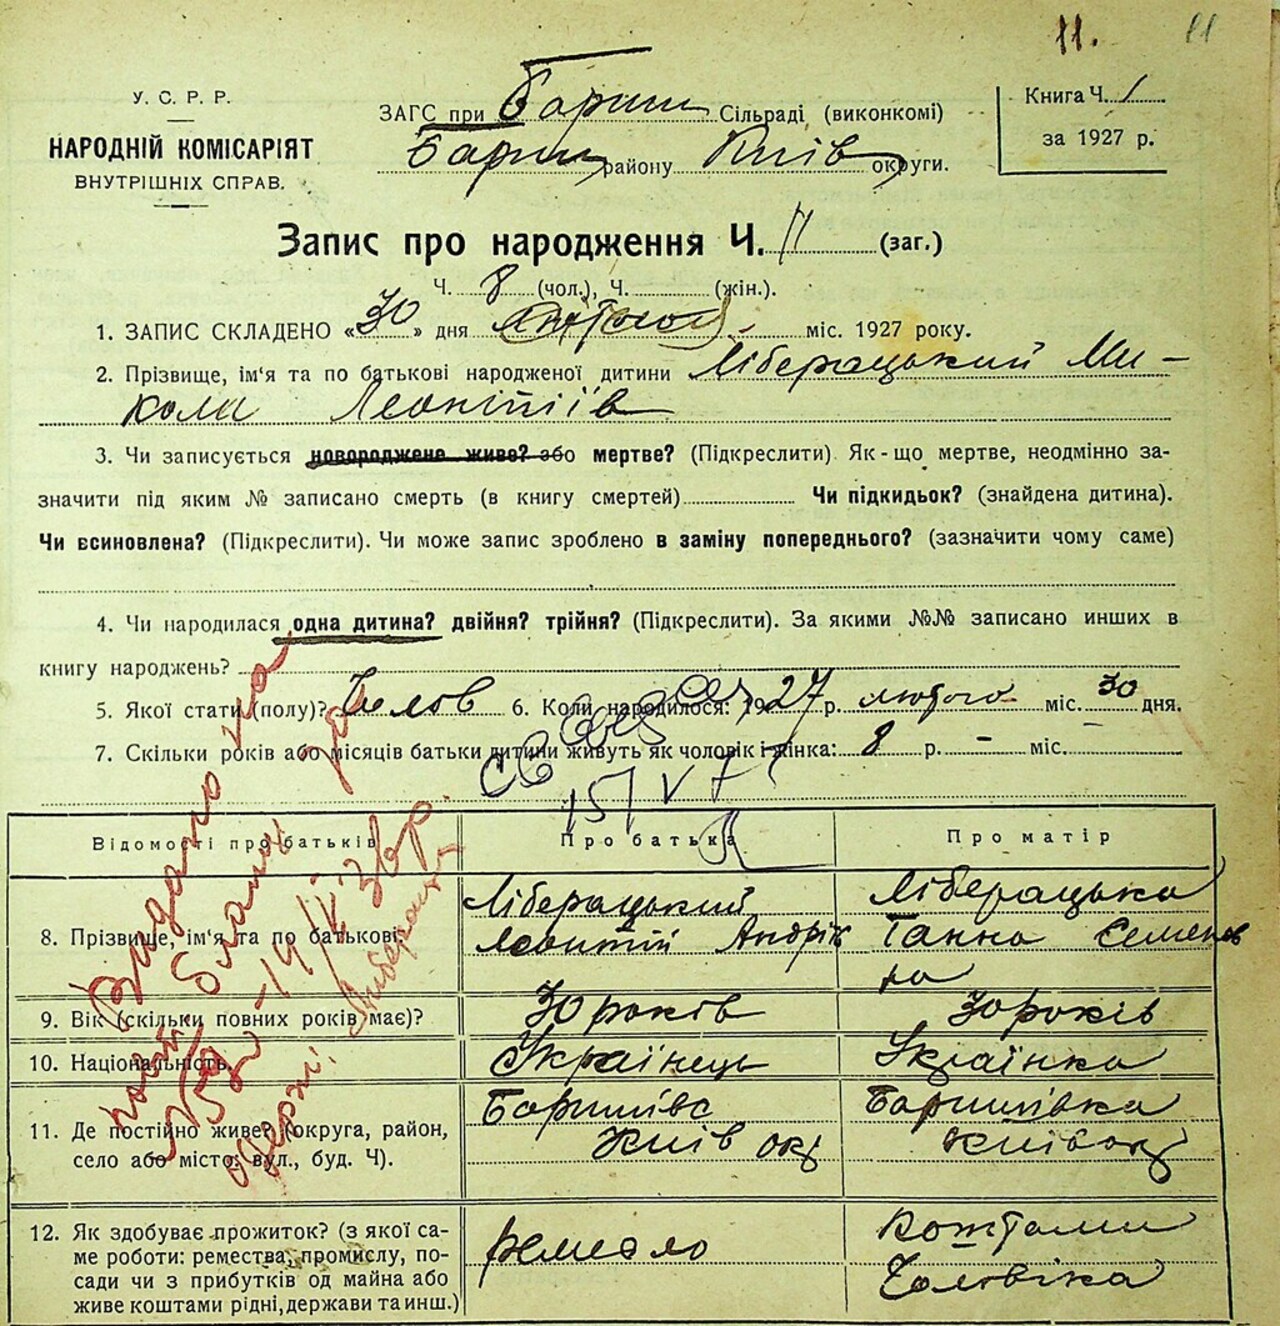 11. 11
У. С. Р. Р.
НАРОДНІЙ КОМІСАРІЯТ
ВНУТРІШНІХ СПРАВ.
ЗАГС при Бориш Сільраді (виконкомі)
Бориш району Київ округи.
Книга Ч. 1
за 1927 р.
Запис про народження Ч. 11 (заг.)
Ч. 8 (чол.), Ч. (жін.).
1. ЗАПИС СКЛАДЕНО «30» дня лютого міс. 1927 року.
2. Прізвище, ім'я та по батькові народженої дитини Ліберацький Ми-
кола Леонтіїв
3. Чи записується новороджене живе? або мертве? (Підкреслити). Як-що мертве, неодмінно за-
значити під яким № записано смерть (в книгу смертей) Чи підкидьок? (знайдена дитина).
Чи всиновлена? (Підкреслити). Чи може запис зроблено в заміну попереднього? (зазначити чому саме)
4. Чи народилася одна дитина? двійня? трійня? (Підкреслити). За якими №№ записано инших в
книгу народжень?
5. Якої стати (полу)? Чолов 6. Коли народилося: 1927 р. лютого міс. 30 дня.
7. Скільки років або місяців батьки дитини живуть як чоловік і жінка: 8 р. - міс.
15/V 7
Відомості про батьків Про батька Про матір
8. Прізвище, ім'я та по батькові. Ліберацький Леонтій Андрік Ліберацька Ганна Семенов на
9. Вік (скільки повних років має)? 30 років 30 років
10. Національність. Українець Українка
11. Де постійно живе? (округа, район, Боришівс Боришівка
село або місто: вул., буд. Ч). Київ окр Київ окр
12. Як здобуває прожиток? (з якої са-
ме роботи: ремества, промислу, по-
сади чи з прибутків од майна або
живе коштами рідні, держави та инш.)
ремесло
коштами
Чоловіка
Видано на